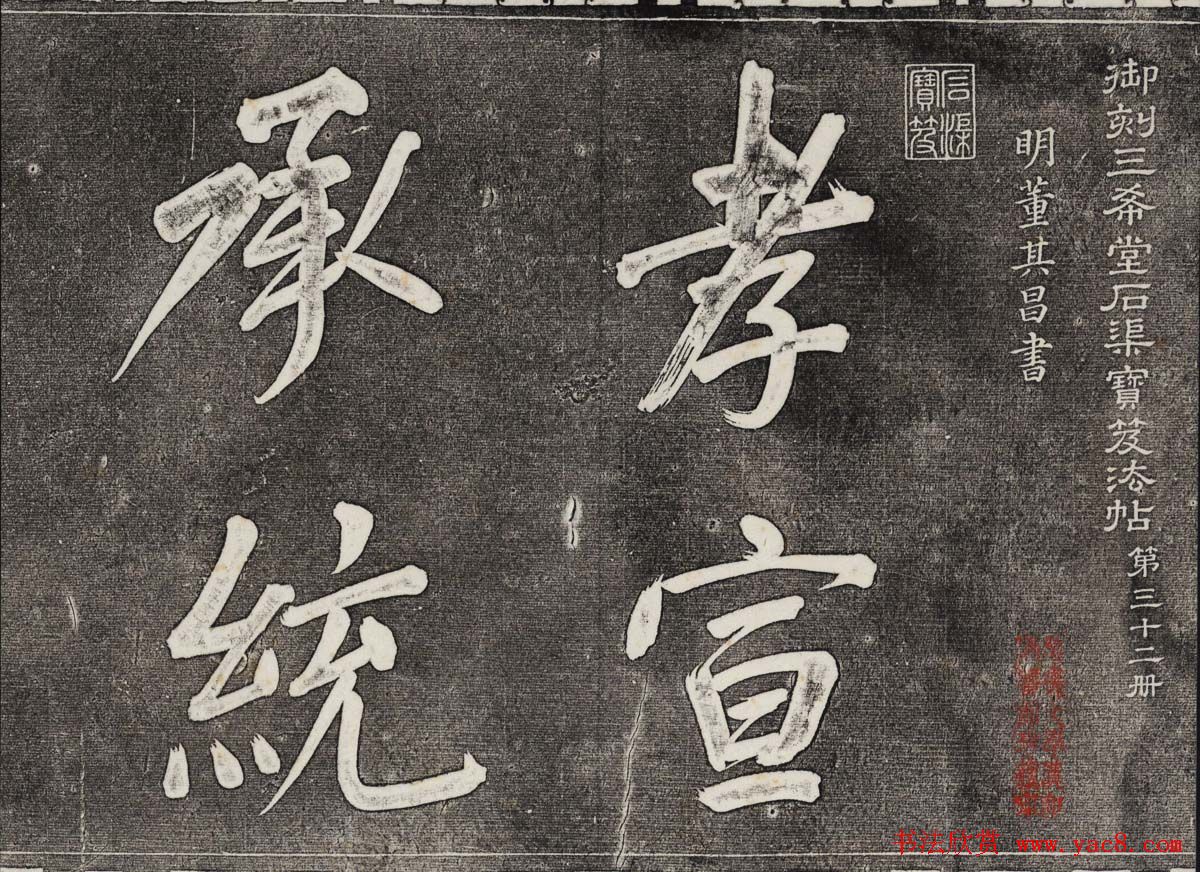 御刻三希堂石渠寶笈法帖 第三十二册
明董其昌書
石渠寶笈
孝宣
承統
书法欣赏 www.yac8.com